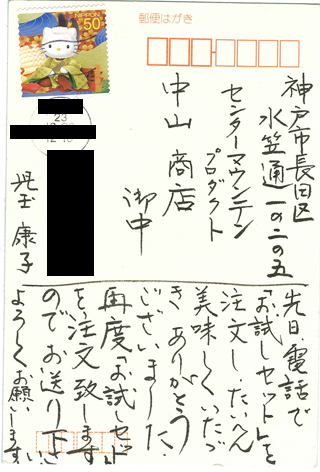 郵便はがき
NIPPON 50
23
神戸市長田区
水笠通一の二の五
センターマウンテン
プロダクト
中山 商店
御中
児玉 康子
先日、電話で
「お試しセット」を
注文し、たいへん
美味しくいただ
き ありがとう
ございました。
再度「お試しセット」
を注文致します
のでお送り下さい。
よろしくお願いします。